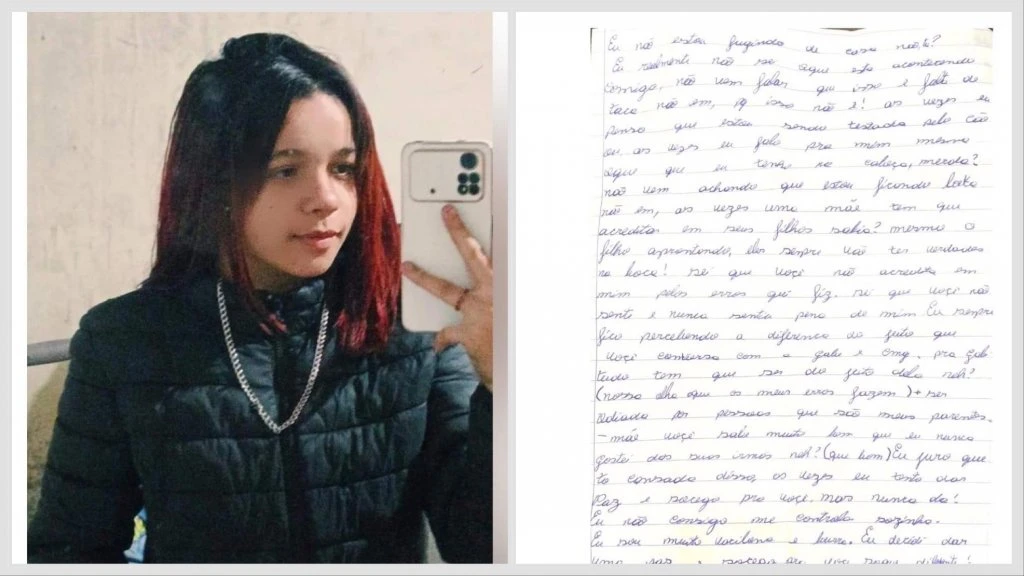 Eu não estou fugindo de casa não, tá?
Eu realmente não sei oque esta acontecendo
comigo, não vem falar que isso é falta de
taca não em, pq isso não é! as vezes eu
penso que estou sendo testada pelo cão
ou as vezes eu falo pra mim mesma
oque que eu tenho na cabeça, merda?
não vem achando que estou ficando loka
não em, as vezes uma mãe tem que
acreditar em seus filhos sabia? mesmo o
filho aprontando, eles sempre vão ter verdades
na boca! sei que voçê não acredita em
mim pelos erros que fiz. sei que voçê não
sente e nunca sentiu pena de mim. Eu sempre
fico percebendo a diferença do jeito que
voçê conversa com a gabi e cmg. pra gab
tudo tem que ser do jeito dela neh?
(nossa olha oque os meus erros fazem) + ser
odiada por pessoas que são meus parentes.
- mãe voçê sabe muito bem que eu nunca
gostei dos suas irmãs neh? (que bom) Eu juro que
to cansada disso, as vezes eu tento dar
Paz e socego pra voçe mas nunca da!
Eu não consigo me controla sozinha.
Eu sou muito vacilona e burra. Eu decidi dar
uma paz e socego pra voçe